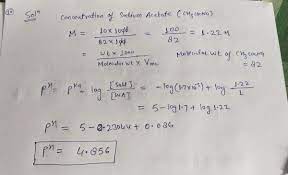 Solⁿ Concentration of Sodium Acetate (CH3COONa)
M = 10×1000 / 82×100 = 100/82 = 1.22 M
= wt × 1000 / Molecular wt × Vml Molecular wt of CH3COONa = 82
pH = pKa + log [Salt]/[WA] = -log(1.7×10⁻⁵) + log 1.22/1
= 5 - log 1.7 + log 1.22
pH = 5 - 0.23044 + 0.086
pH = 4.856